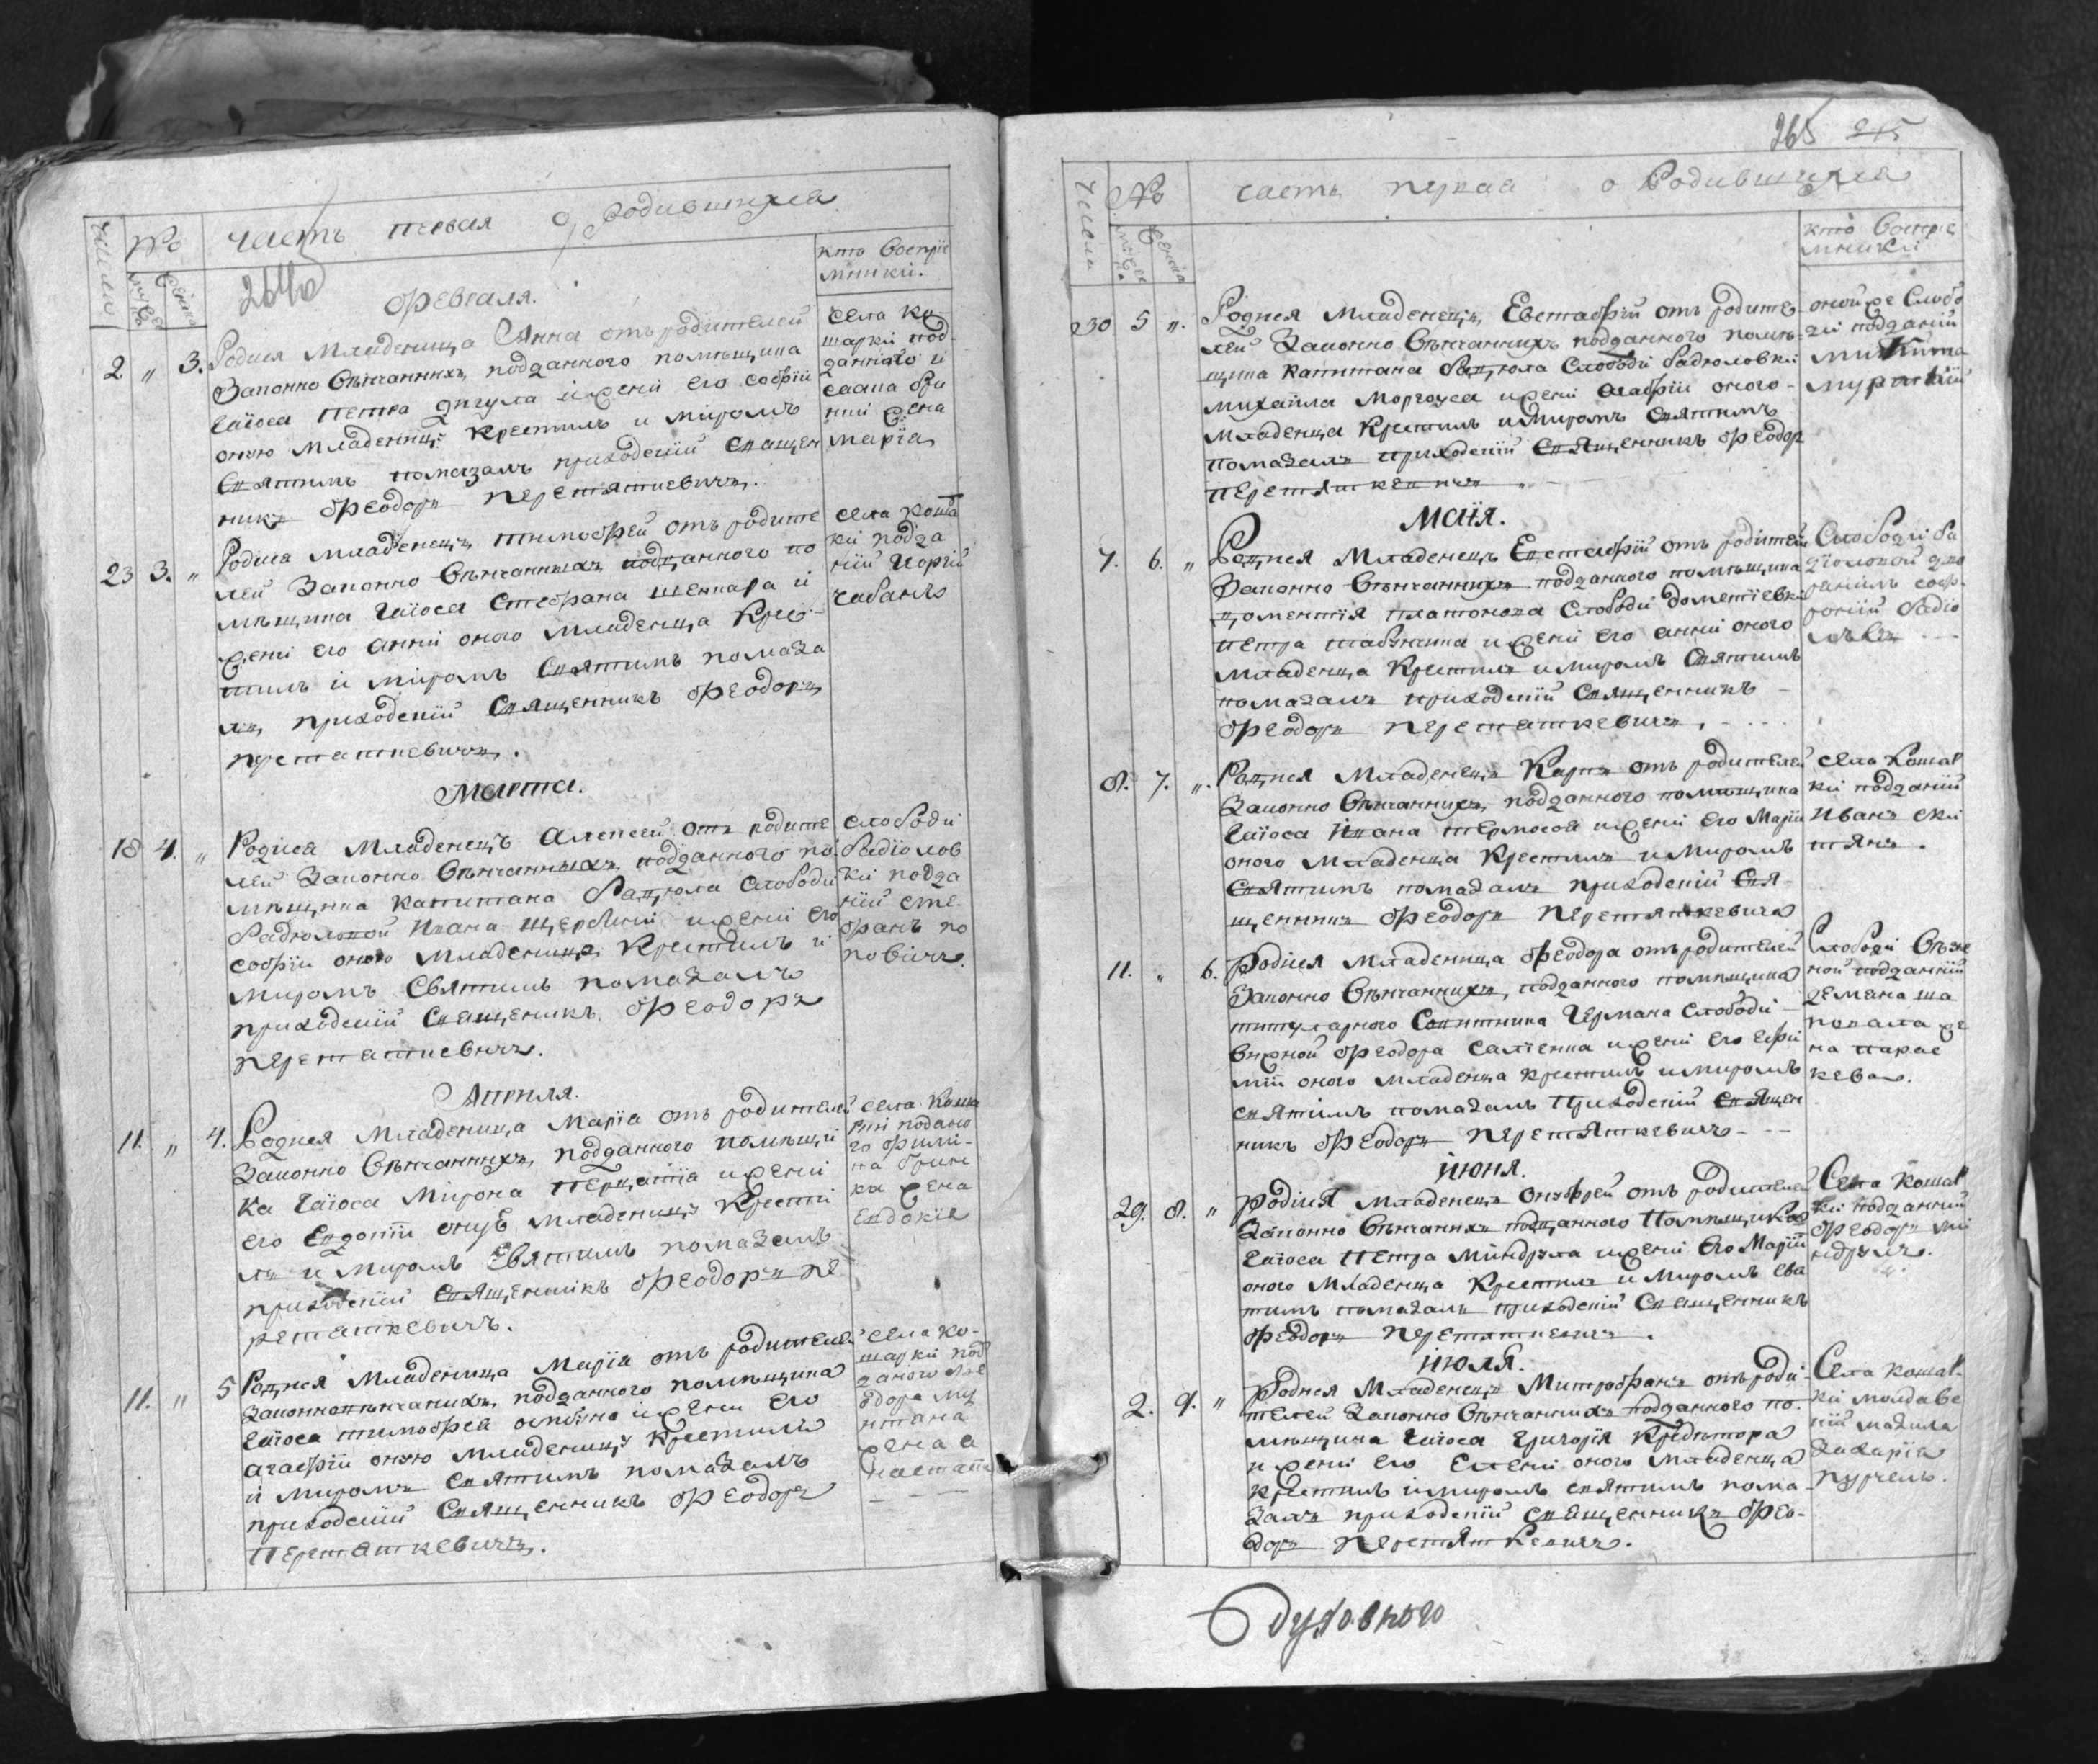 числа № часть первая о родившихся
264
мужеска женска
кто восприе
мники.
Февраля.
2 „ 3. Родися Младеница Анна отъ родителей
Законно Вѣнчанныхъ, подданного помѣщика
Гаіоса Петра Дигула и жени его Софіи
оную Младеницу Крестилъ и Міромъ
Святимъ помазалъ приходскій Священ
никъ Феодоръ Перетяткевичъ.
села Ко
шарки под
данного
жена
Марія
23 3. „ Родися Младенецъ Тимофей отъ родите
лей Законно Вѣнчанныхъ подданного по
мѣщика Гаіоса Стефана и
жени его Анни оного Младенца Крес
тилъ и Міромъ Святимъ помаза
лъ, приходскій Священникъ Феодоръ
Перетяткевичъ.
села Коша
ки подда
ній Георгій
Чабанъ
Марта.
18 4. „ Родися Младенецъ Алексей отъ родите
лей Законно Вѣнчанныхъ подданного по
мѣщика Капитана Радіола Слободи
Радіоловой Ивана Щербини и жени его
Софіи оного Младенца Крестилъ и
Миромъ Святимъ помазалъ
приходскій Священикъ Феодоръ
Перетяткевичъ.
Слободи
Радіолов
ки подда
ній Сте-
фанъ По
повичъ
Апреля.
11. „ 4. Родися Младеница Марія отъ родителей
Законно Вѣнчанныхъ, подданного помѣщи
ка Гаіоса Мирона и жени
его Евдокіи онуѣ Младеницу Крести
лъ и Миромъ Святимъ помазалъ
приходскій Священникъ Феодоръ Пе
ретяткевичъ.
села Коша
рки поданно
го Фили-
на
ка жена
Евдокіа
11. „ 5 Родися Младеница Марія отъ родителей
Законновѣнчанихъ, подданного помѣщика
Гаіоса Тимофея и жени его
Агафіи оную Младеницу Крестилъ
и Миромъ Святимъ помазалъ
приходскій Священникъ Феодоръ
Перетяткевичъ.
села Ко-
шарки под
даного Фе
одора Му
нтяна
жена А
настасіа
265 215
числа № часть первая о Родившихся
мужеска женска
кто Воспрiе
мники
230 5 „. Родися Младенецъ, Евстафій отъ родите
лей Законно Вѣнчанныхъ подданного помѣ-
щика Капитана Радіола Слободи Радіоловки
Михайла и жени Агафіи оного
Младенца Крестилъ и Миромъ Святимъ
помазалъ приходскій Священникъ Феодор
Перетяткевичъ
оной же Слобо
ди подданій
Микита
Маія.
7. 6. „ Родися Младенецъ Евстафій отъ родителей
Законно Вѣнчанныхъ подданного помѣщика
Доментія Платонова Слободи Доментіевки
Петра и жени его Анни оного
Младенца Крестилъ и миромъ Святимъ
помазалъ приходскій Священникъ
Феодоръ Перетяткевичъ,
Слободи Ра
діоловой
8. 7. „. Родися Младенецъ Карпъ отъ родителей
Законно Вѣнчанныхъ, подданного помѣщика
Гаіоса Ивана и жени его Маріи
оного Младенца Крестилъ и Миромъ
Святимъ помазалъ приходскій Свя-
щенникъ Феодоръ Перетяткевичъ
села Кошар
ки подданій
Иванъ
11. „ 6. Родися Младеница Феодора отъ родителей
Законно Вѣнчанныхъ, подданного помѣщика
титулярного Совитника Германа Слободи
Феодора и жени его Ефи
міи оного Младенца Крестилъ и миромъ
Святимъ помазалъ Приходскій Священ
никъ Феодоръ Перетяткевичъ
Слободи
ной подданій
Демяна Ша
повала же
на Парас
кева.
Июня.
29. 8. „ Родися Младенецъ Онуфрей отъ родителей
Законно Вѣнчанихъ подданного Помѣщика
Гаіоса Петра Миндрула и жени его Маріи
оного Младенца Крестилъ и Миромъ Свя
тимъ помазалъ приходскій Священникъ
Феодоръ Перетяткевичъ.
Села Кошар
ки подданий
Феодоръ Ми
ндрулъ.
Июля.
2. 9. „ Родися Младенецъ Митрофанъ отъ роди-
телей Законно Вѣнчанныхъ подданного по-
мѣщика Гаіоса Григорія
и жени его Елени оного Младенца
Крестилъ и миромъ святимъ пома-
залъ приходскій священникъ Фео-
доръ Перетяткевичъ.
Села Кошар-
ки
Захаріа
Духовного